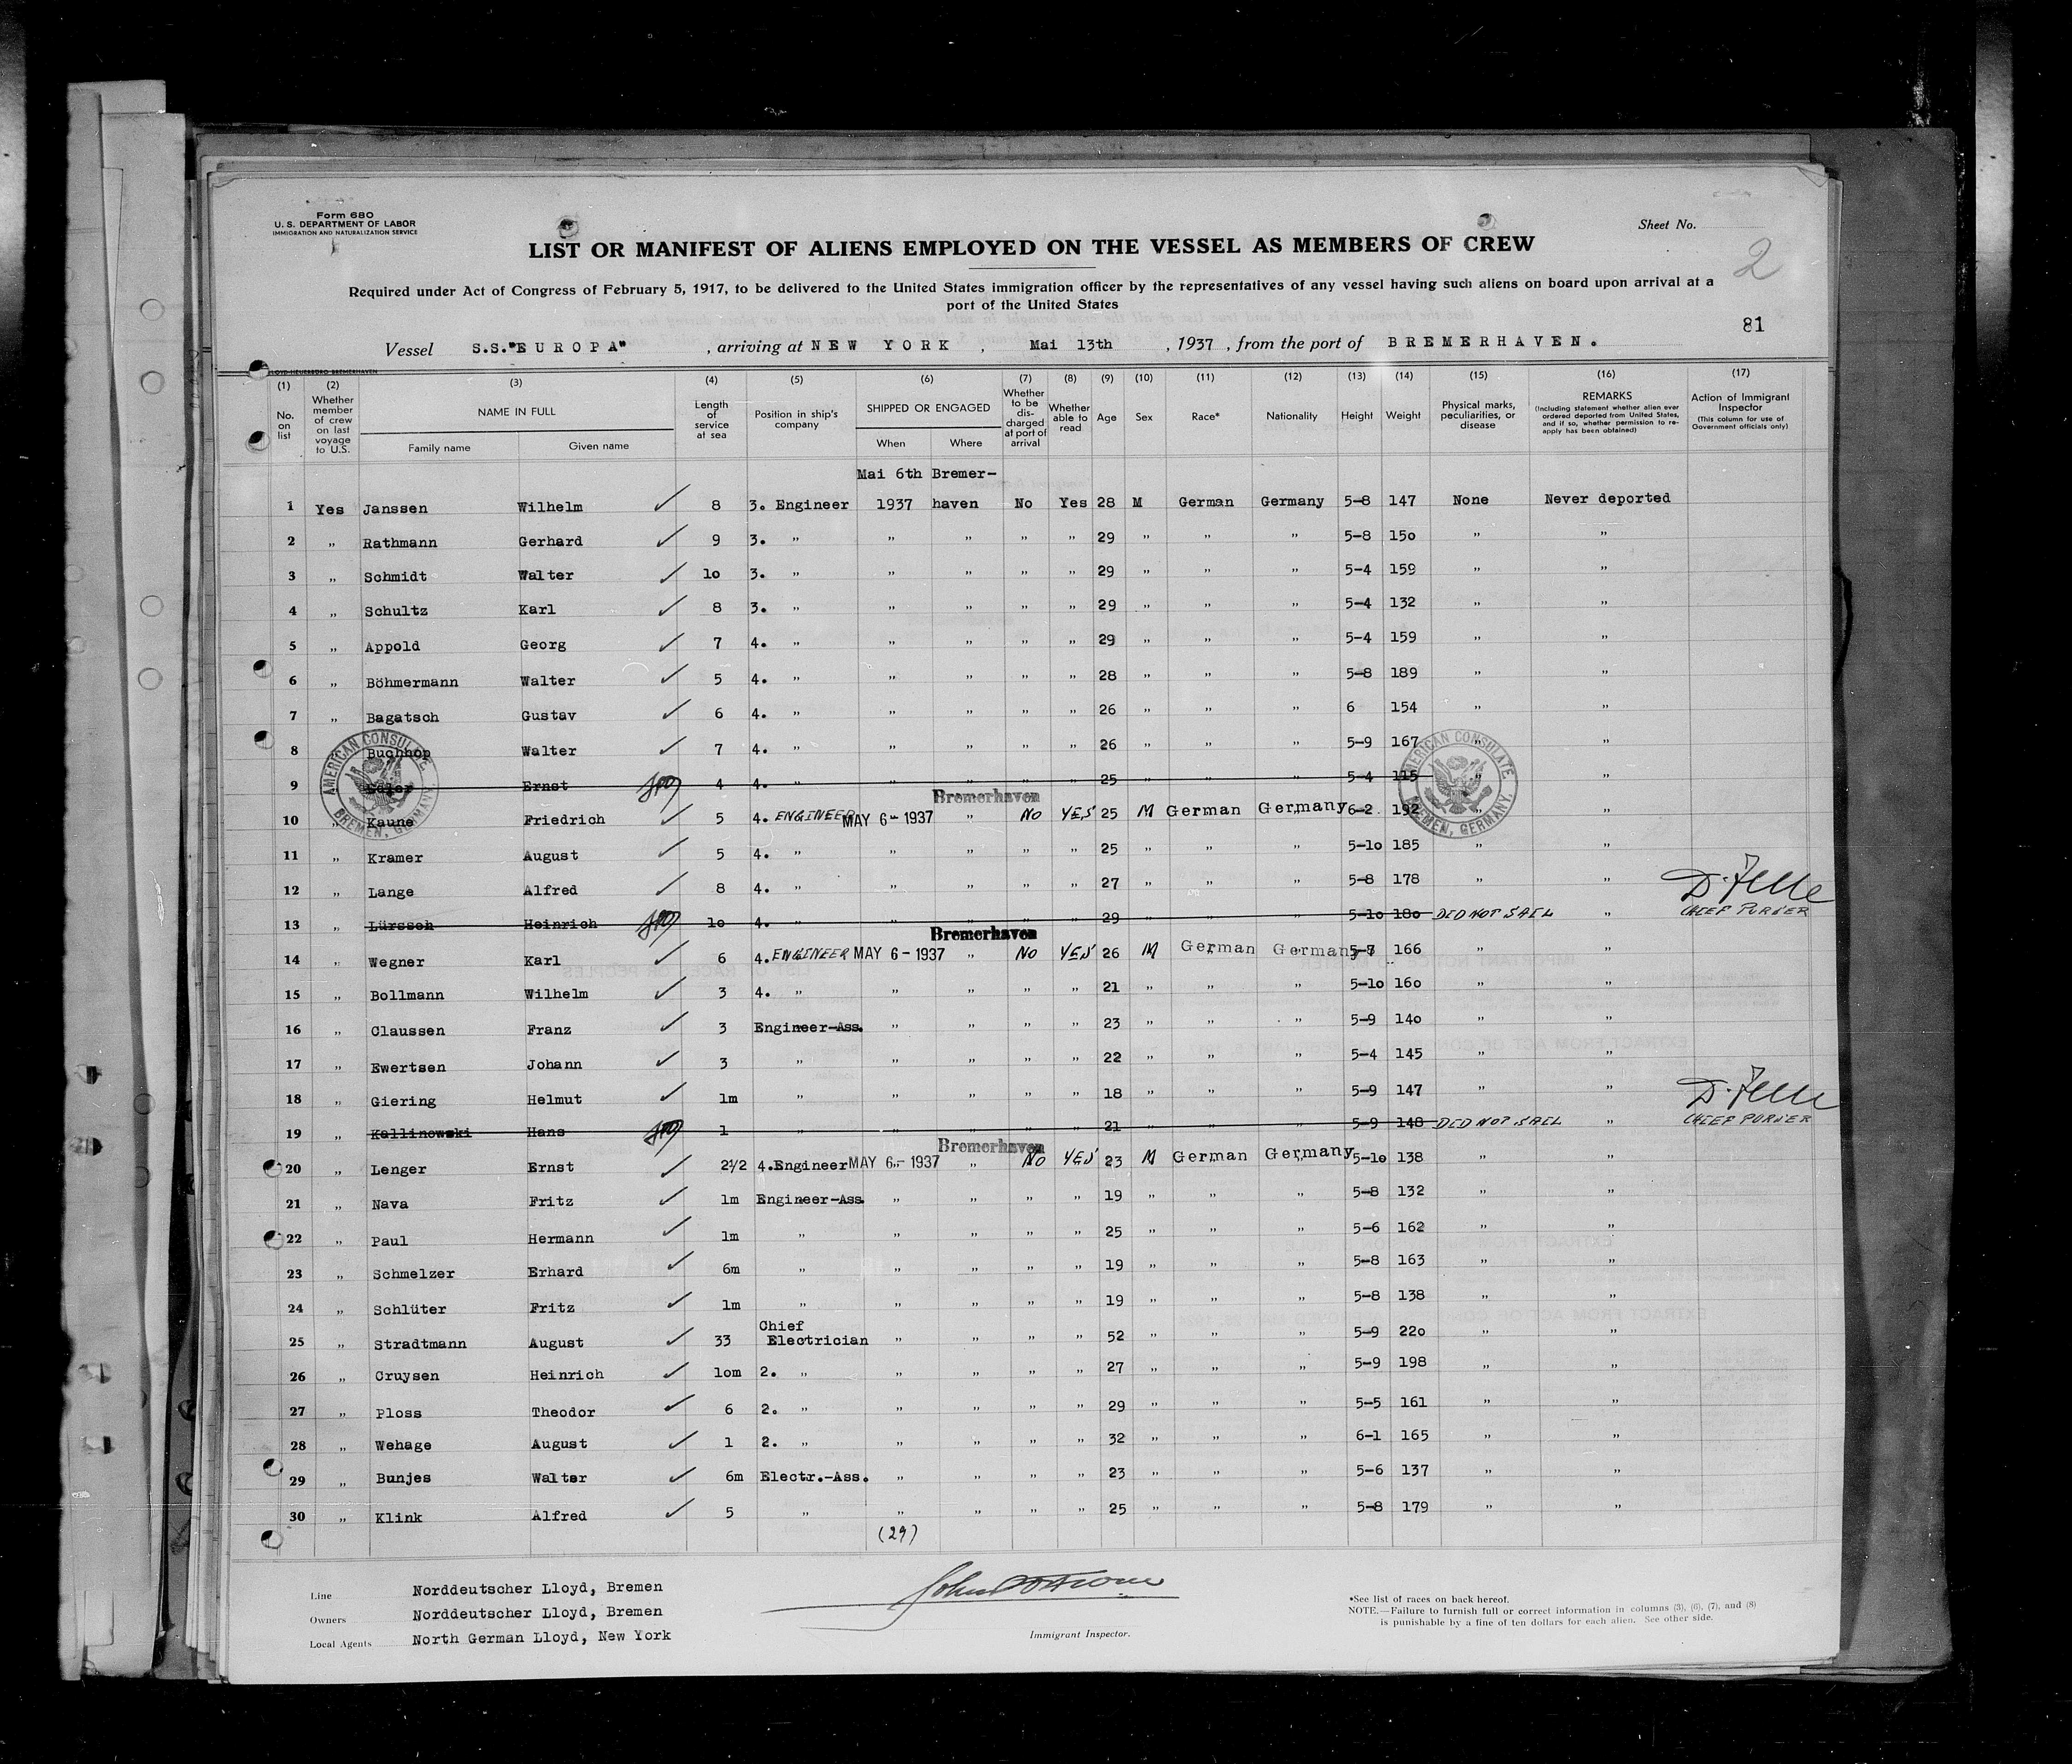 Form 680
U. S. DEPARTMENT OF LABOR
IMMIGRATION AND NATURALIZATION SERVICE
Sheet No.
2
LIST OR MANIFEST OF ALIENS EMPLOYED ON THE VESSEL AS MEMBERS OF CREW
Required under Act of Congress of February 5, 1917, to be delivered to the United States immigration officer by the representatives of any vessel having such aliens on board upon arrival at a
port of the United States
81
Vessel S.S."EUROPA" , arriving at NEW YORK , Mai 13th , 1937 , from the port of BREMERHAVEN.
(1) (2) (3) (4) (5) (6) (7) (8) (9) (10) (11) (12) (13) (14) (15) (16) (17)
No. on list Whether member of crew on last voyage to U.S. NAME IN FULL Family name Given name Length of service at sea Position in ship's company SHIPPED OR ENGAGED When Where Whether to be discharged at port of arrival Whether able to read Age Sex Race* Nationality Height Weight Physical marks, peculiarities, or disease REMARKS (Including statement whether alien ever ordered deported from United States, and if so, whether permission to reapply has been obtained) Action of Immigrant Inspector (This column for use of Government officials only)
Mai 6th Bremer-
1 Yes Janssen Wilhelm ✓ 8 3. Engineer 1937 haven No Yes 28 M German Germany 5-8 147 None Never deported
2 " Rathmann Gerhard ✓ 9 3. " " " " " 29 " " " 5-8 15o " "
3 " Schmidt Walter ✓ lo 3. " " " " " 29 " " " 5-4 159 " "
4 " Schultz Karl ✓ 8 3. " " " " " 29 " " " 5-4 132 " "
5 " Appold Georg ✓ 7 4. " " " " " 29 " " " 5-4 159 " "
6 " Böhmermann Walter ✓ 5 4. " " " " " 28 " " " 5-8 189 " "
7 " Bagatsch Gustav ✓ 6 4. " " " " " 26 " " " 6 154 " "
8 Buchhop Walter ✓ 7 4. " " " " " 26 " " " 5-9 167 " "
AMERICAN CONSULATE BREMEN, GERMANY.
AMERICAN CONSULATE BREMEN, GERMANY.
9 Ernst 4 4. " " " " " 25 " " " 5-4 115 " "
Bremerhaven
10 " Kaune Friedrich ✓ 5 4. ENGINEER MAY 6 - 1937 " NO YES 25 M German Germany 6-2 192 " "
11 " Kramer August ✓ 5 4. " " " " " 25 " " " 5-lo 185 " "
12 " Lange Alfred ✓ 8 4. " " " " " 27 " " " 5-8 178 " "
13 " Lürssen Heinrich lo 4. " " " " " 29 " " " 5-lo 18o DID NOT SAIL " CHIEF PURSER
Bremerhaven
14 " Wegner Karl ✓ 6 4. ENGINEER MAY 6 - 1937 " NO YES 26 M German Germany 5-7 166 " "
15 " Bollmann Wilhelm ✓ 3 4. " " " " " 21 " " " 5-lo 16o " "
16 " Claussen Franz ✓ 3 Engineer-Ass. " " " " 23 " " " 5-9 14o " "
17 " Ewertsen Johann ✓ 3 " " " " " 22 " " " 5-4 145 " "
18 " Giering Helmut ✓ lm " " " " " 18 " " " 5-9 147 " "
19 " Kallinowski Hans 1 " " " " " 21 " " " 5-9 148 DID NOT SAIL " CHIEF PURSER
Bremerhaven
20 " Lenger Ernst ✓ 2½ 4.Engineer MAY 6 - 1937 " NO YES 23 M German Germany 5-lo 138 " "
21 " Nava Fritz ✓ lm Engineer-Ass. " " " " 19 " " " 5-8 132 " "
22 " Paul Hermann ✓ lm " " " " " 25 " " " 5-6 162 " "
23 " Schmelzer Erhard ✓ 6m " " " " " 19 " " " 5-8 163 " "
24 " Schlüter Fritz ✓ lm " " " " " 19 " " " 5-8 138 " "
Chief
25 " Stradtmann August ✓ 33 Electrician " " " " 52 " " " 5-9 22o " "
26 " Cruysen Heinrich ✓ lom 2. " " " " " 27 " " " 5-9 198 " "
27 " Ploss Theodor ✓ 6 2. " " " " " 29 " " " 5-5 161 " "
28 " Wehage August ✓ 1 2. " " " " " 32 " " " 6-1 165 " "
29 " Bunjes Walter ✓ 6m Electr.-Ass. " " " " 23 " " " 5-6 137 " "
30 " Klink Alfred ✓ 5 " " " " " 25 " " " 5-8 179 " "
(29)
Line Norddeutscher Lloyd, Bremen
Owners Norddeutscher Lloyd, Bremen
Local Agents North German Lloyd, New York
Immigrant Inspector.
*See list of races on back hereof.
NOTE.—Failure to furnish full or correct information in columns (3), (6), (7), and (8)
is punishable by a fine of ten dollars for each alien. See other side.